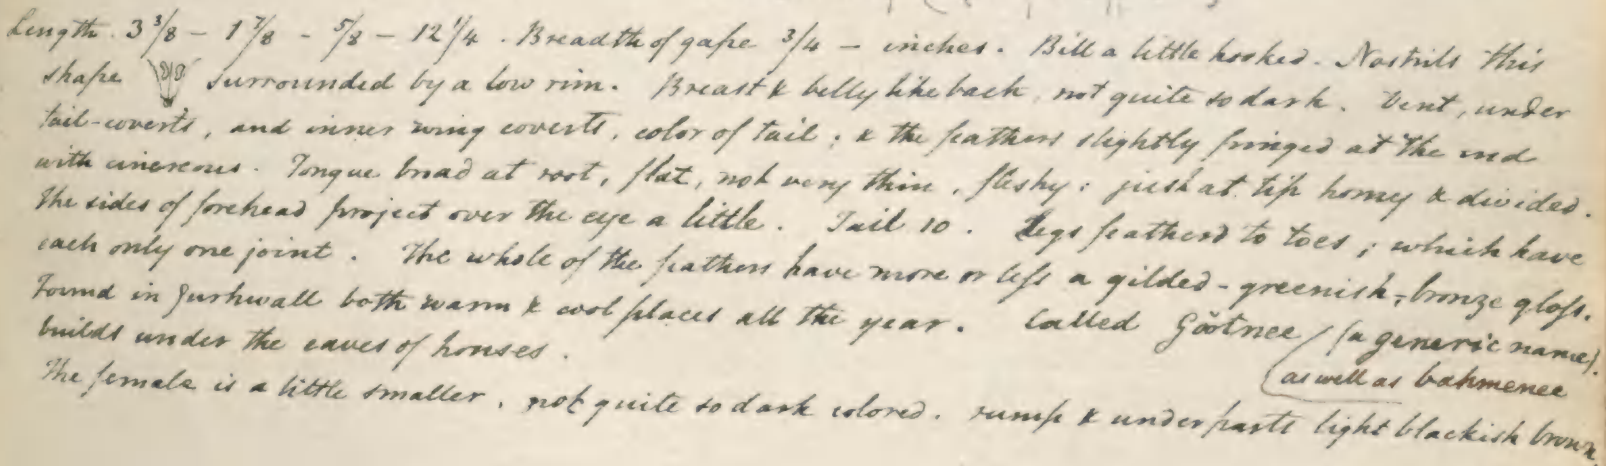 Length. 3 3/8 – 1 7/8 – 5/8 – 12 1/4. Breadth of gape 3/4 – inches. Bill a little hooked. Nostrils this
shape surrounded by a low rim. Breast & belly like back, not quite so dark. Vent, under
tail-coverts, and inner wing coverts, color of tail; & the feathers slightly fringed at the end
with cinereous. Tongue broad at root, flat, not very thin, fleshy; just at tip horny & divided.
The sides of forehead project over the eye a little. Tail 10. Legs featherd to toes; which have
each only one joint. The whole of the feathers have more or less a gilded-greenish-bronze gloss.
Found in Gurhwall both warm & cool places all the year. Called Göötnee (a generic name).
as well as bahmenee
builds under the eaves of houses.
The female is a little smaller, not quite so dark colored. rump & underparts light blackish brown.